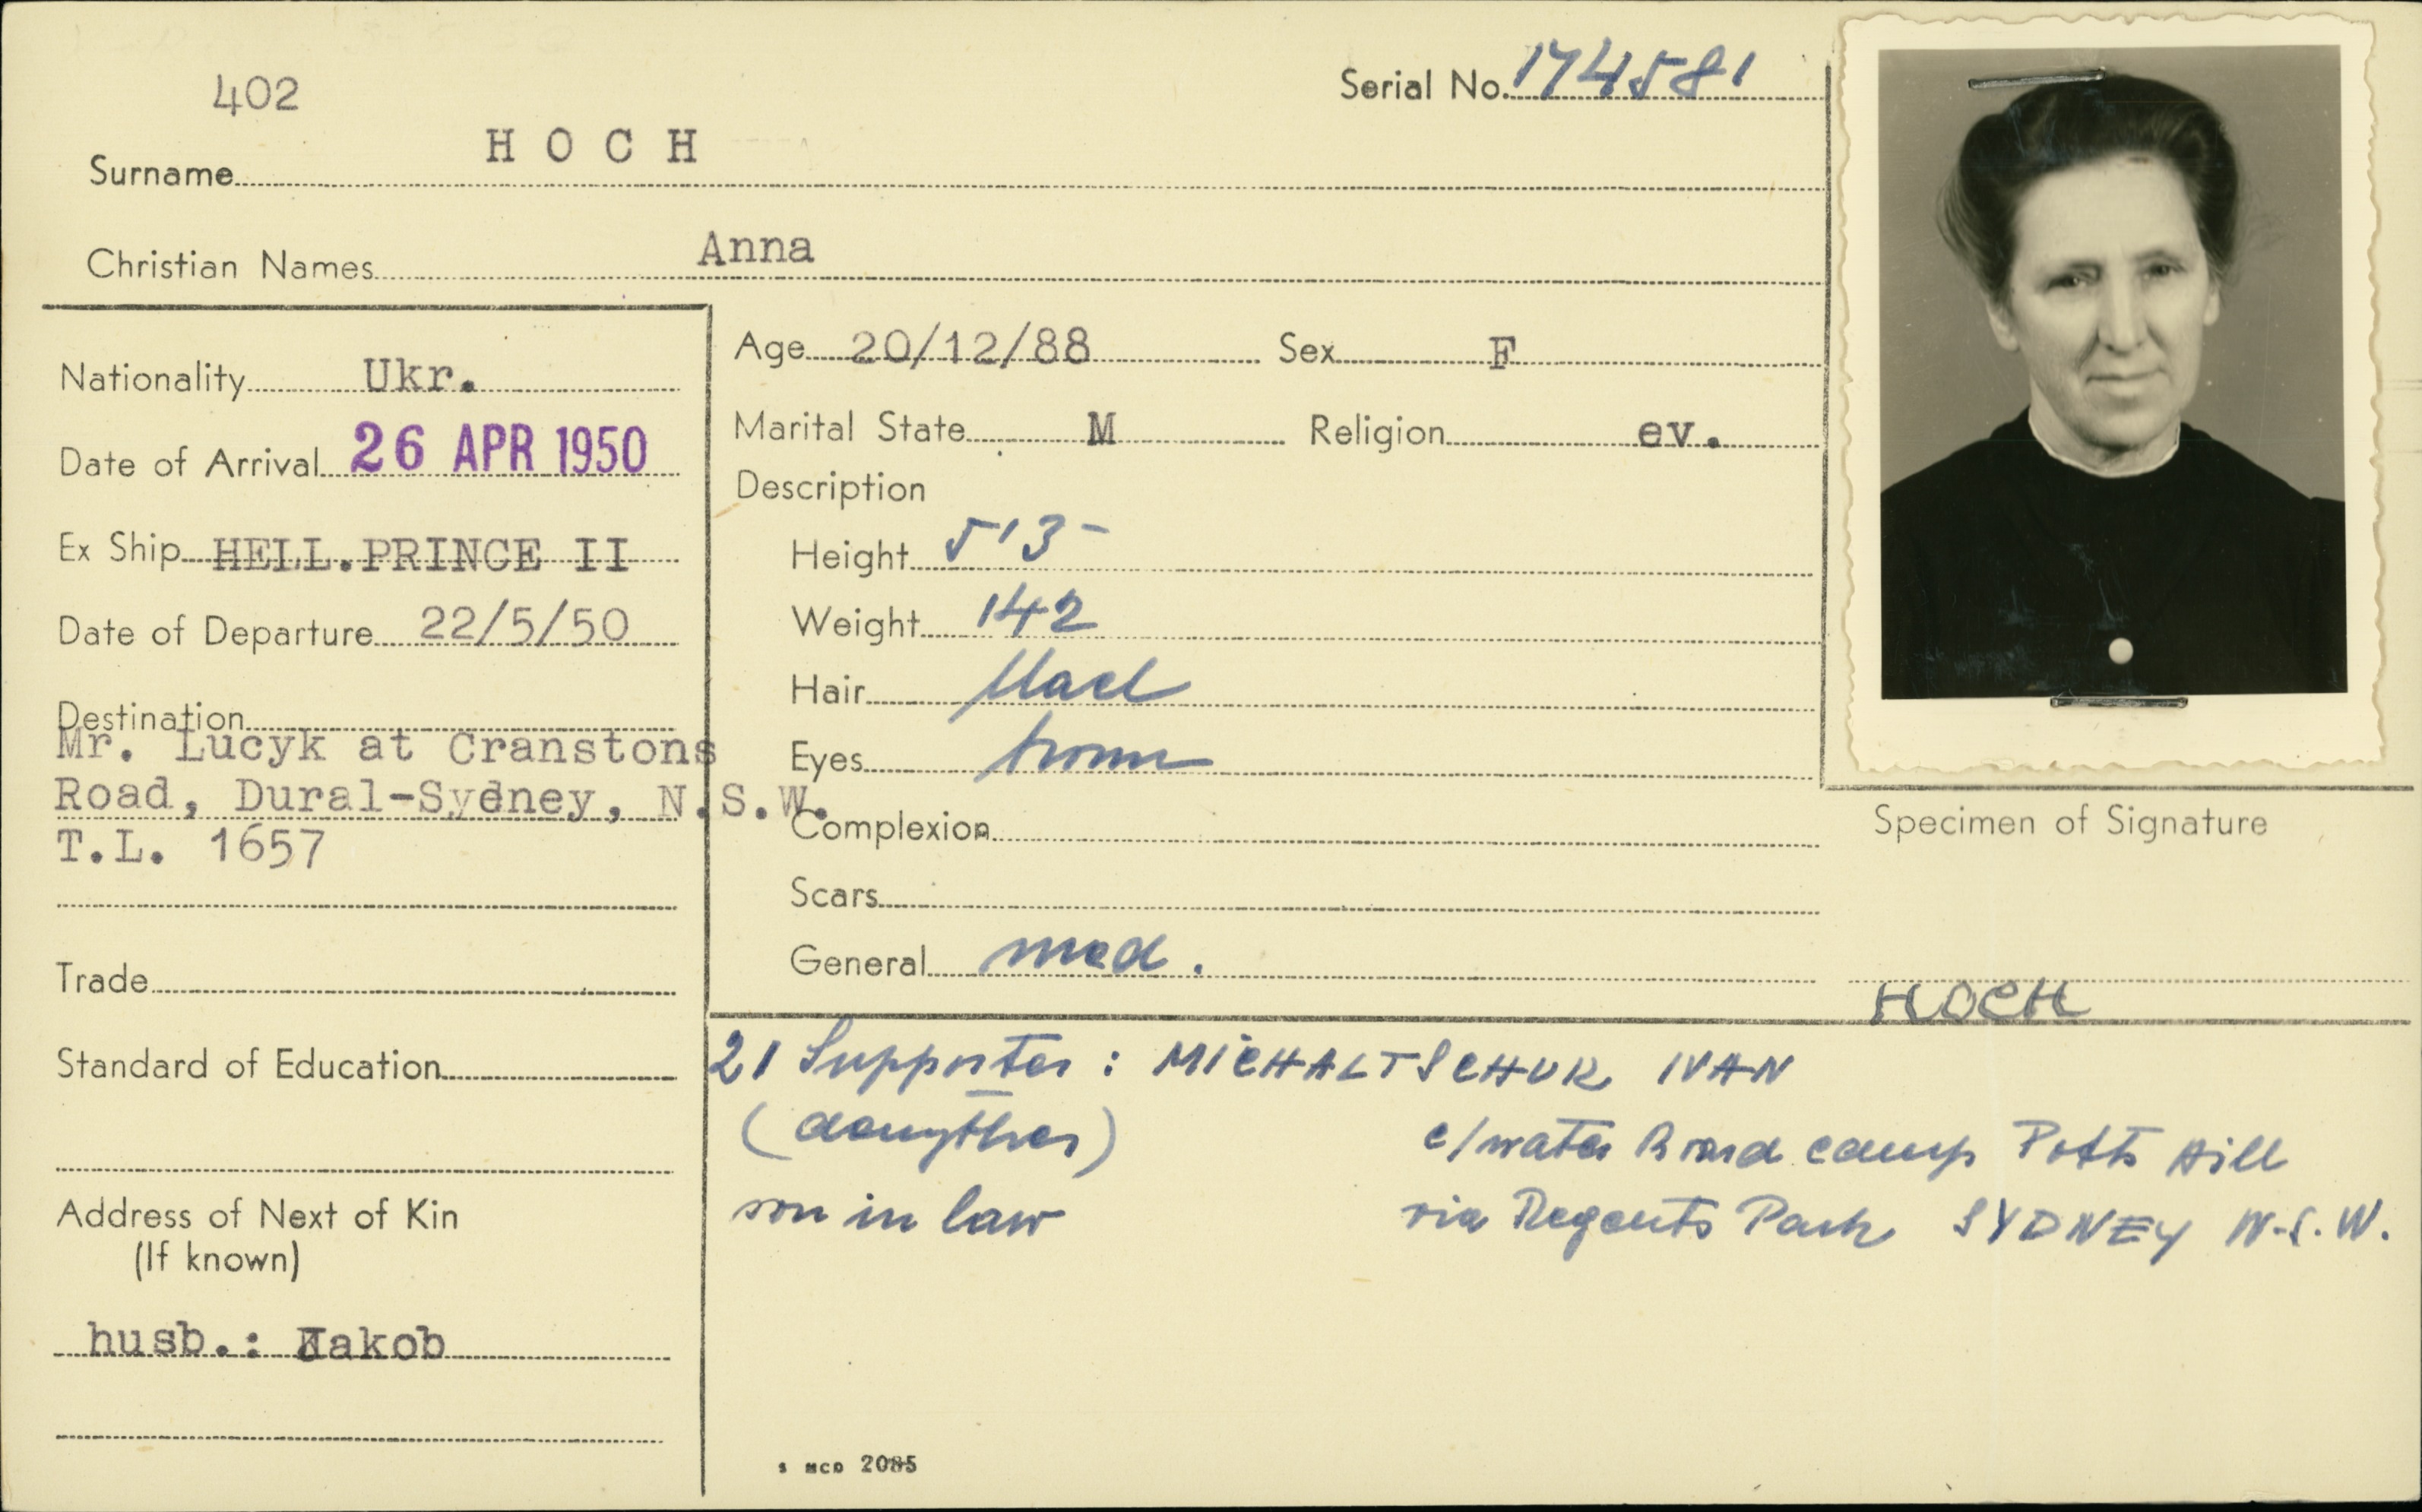 402
Serial No. 174581
Surname H O C H
Christian Names Anna
Nationality Ukr.
Date of Arrival 26 APR 1950
Ex Ship HELL.PRINCE II
Date of Departure 22/5/50
Destination
Mr. Lucyk at Cranstons
Road, Dural-Sydney, N.S.W.
T.L. 1657
Trade
Standard of Education
Address of Next of Kin
(If known)
husb.: Jakob
Age 20/12/88 Sex F
Marital State M Religion ev.
Description
Height 5'3-
Weight 142
Hair black
Eyes brown
Complexion
Scars
General med.
Specimen of Signature
HOCH
21 Supporter: MICHALTSCHUK IVAN
(daugther) c/water Board camp Potts Hill
son in law via Regents Park SYDNEY N.S.W.
2085